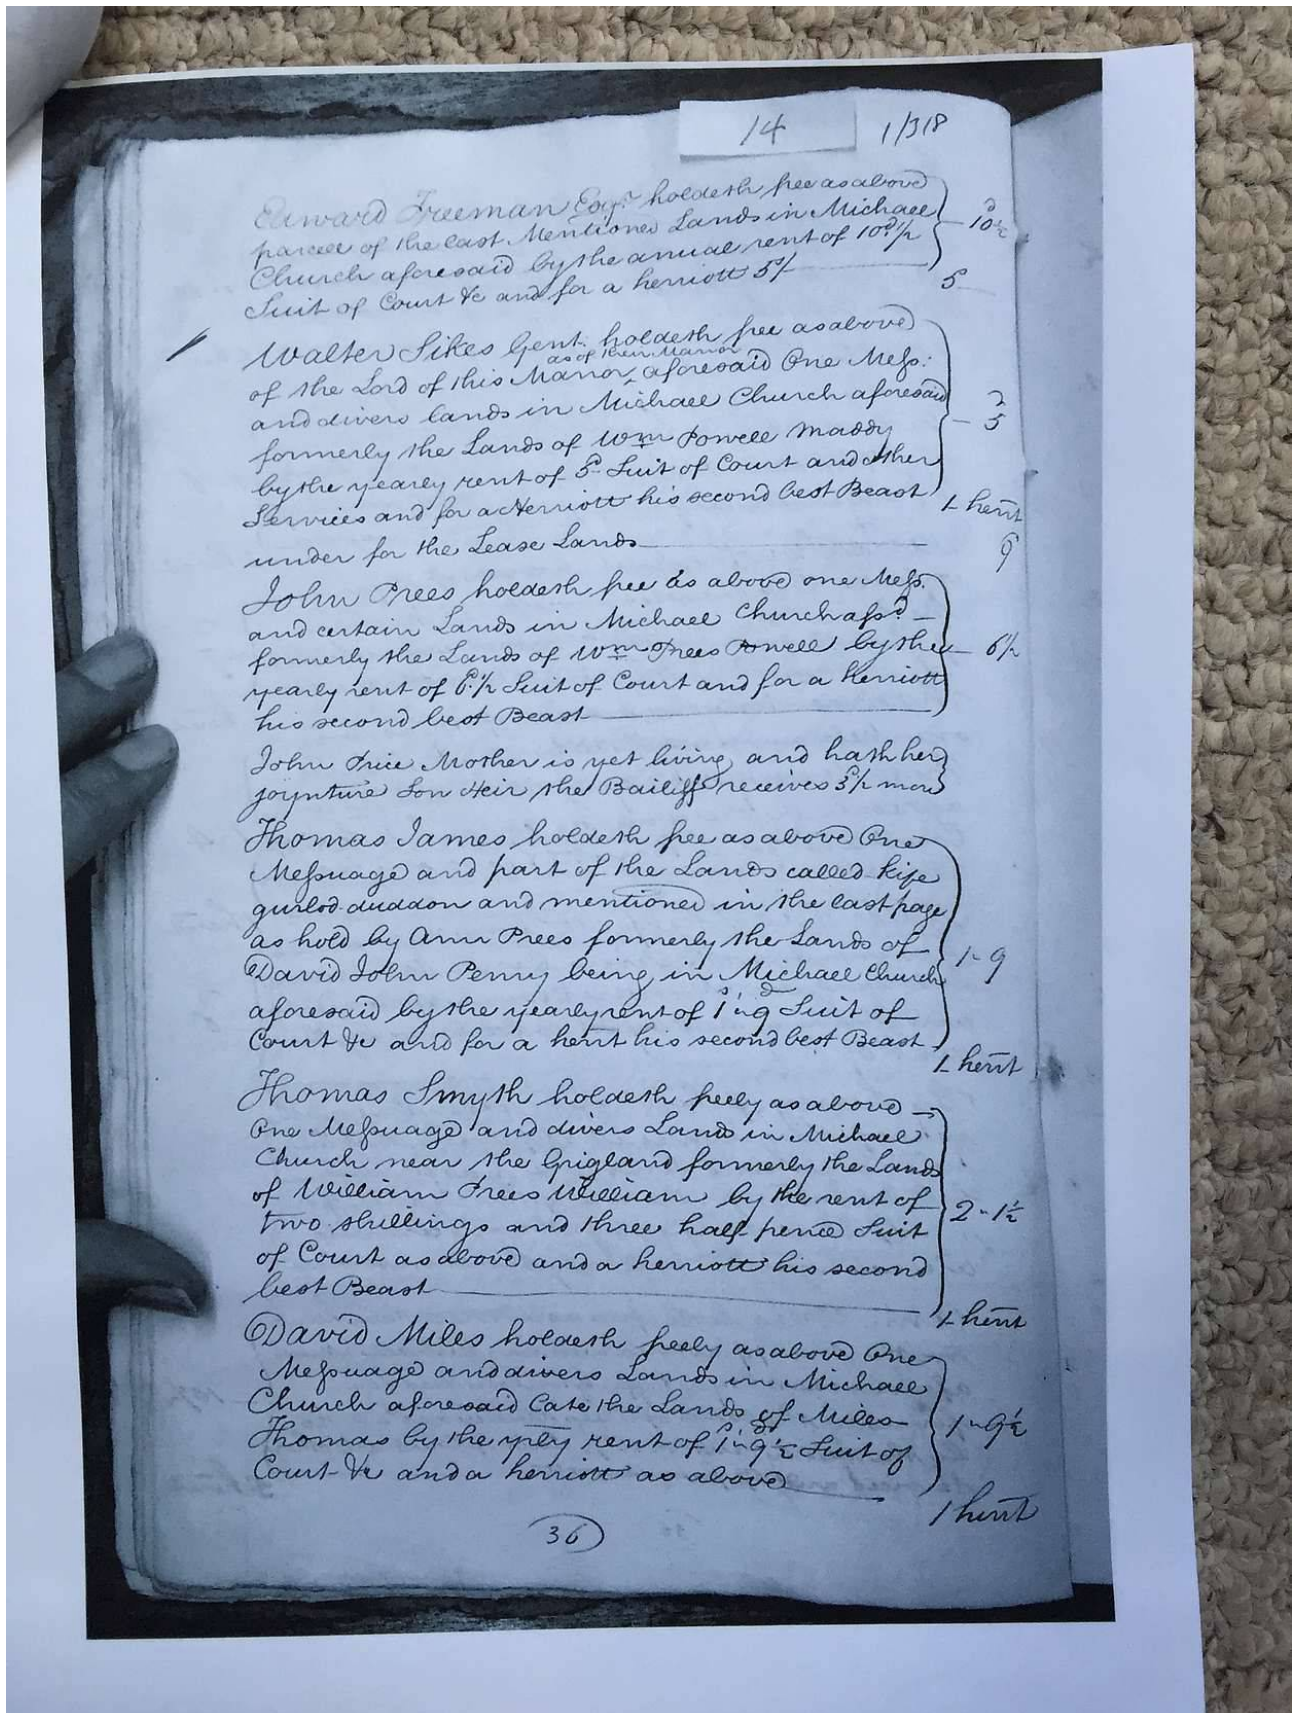 14 1/318
Edward Freeman Esqr. holdeth free as above
parcel of the last Mentioned Lands in Michael
Church aforesaid by the anual rent of 10d 1/2 10d 1/2
Suit of Court &c and for a herriott 5/- 5
Walter Sikes Gent. holdeth free as above
as of their Manor
of the Lord of this Manor ^ aforesaid One Mess:
and divers lands in Michael Church aforesaid
formerly the Lands of Wm Powell Maddy d 5
by the yearly rent of 5d Suit of Court and other
Services and for a Herriott his second best Beast 1 herrt
under for the Lease Lands
John Prees holdeth free as above one Mess.
and certain Lands in Michael Church afsd
formerly the Lands of Wm Prees Powell by the 6 1/2
yearly rent of 6d. 1/2 Suit of Court and for a Herriott
his second best Beast
John Price Mother is yet living and hath her
joynture Son Heir the Bailiff receives more
Thomas James holdeth free as above One
Messuage and part of the Lands called
and mentioned in the last page
as hold by Ann Prees formerly the Lands of
David John Penry being in Michael Church 1 " 9
aforesaid by the yearly rent of 1s " 9d Suit of
Court &c and for a herrt his second best Beast 1 herrt
Thomas Smyth holdeth freely as above
One Messuage and divers Lands in Michael
Church near the Grigland formerly the Lands
of William Prees William by the rent of 2 " 1 1/2
two shillings and three half pence Suit
of Court as above and a herriott his second
best Beast 1 herrt
David Miles holdeth freely as above One
Messuage and divers Lands in Michael
Church aforesaid Late the Lands of Miles 1 " 9 1/2
Thomas by the yrly rent of 1s " 9d 1/2 Suit of
Court &c and a herriott as above 1 herrt
36